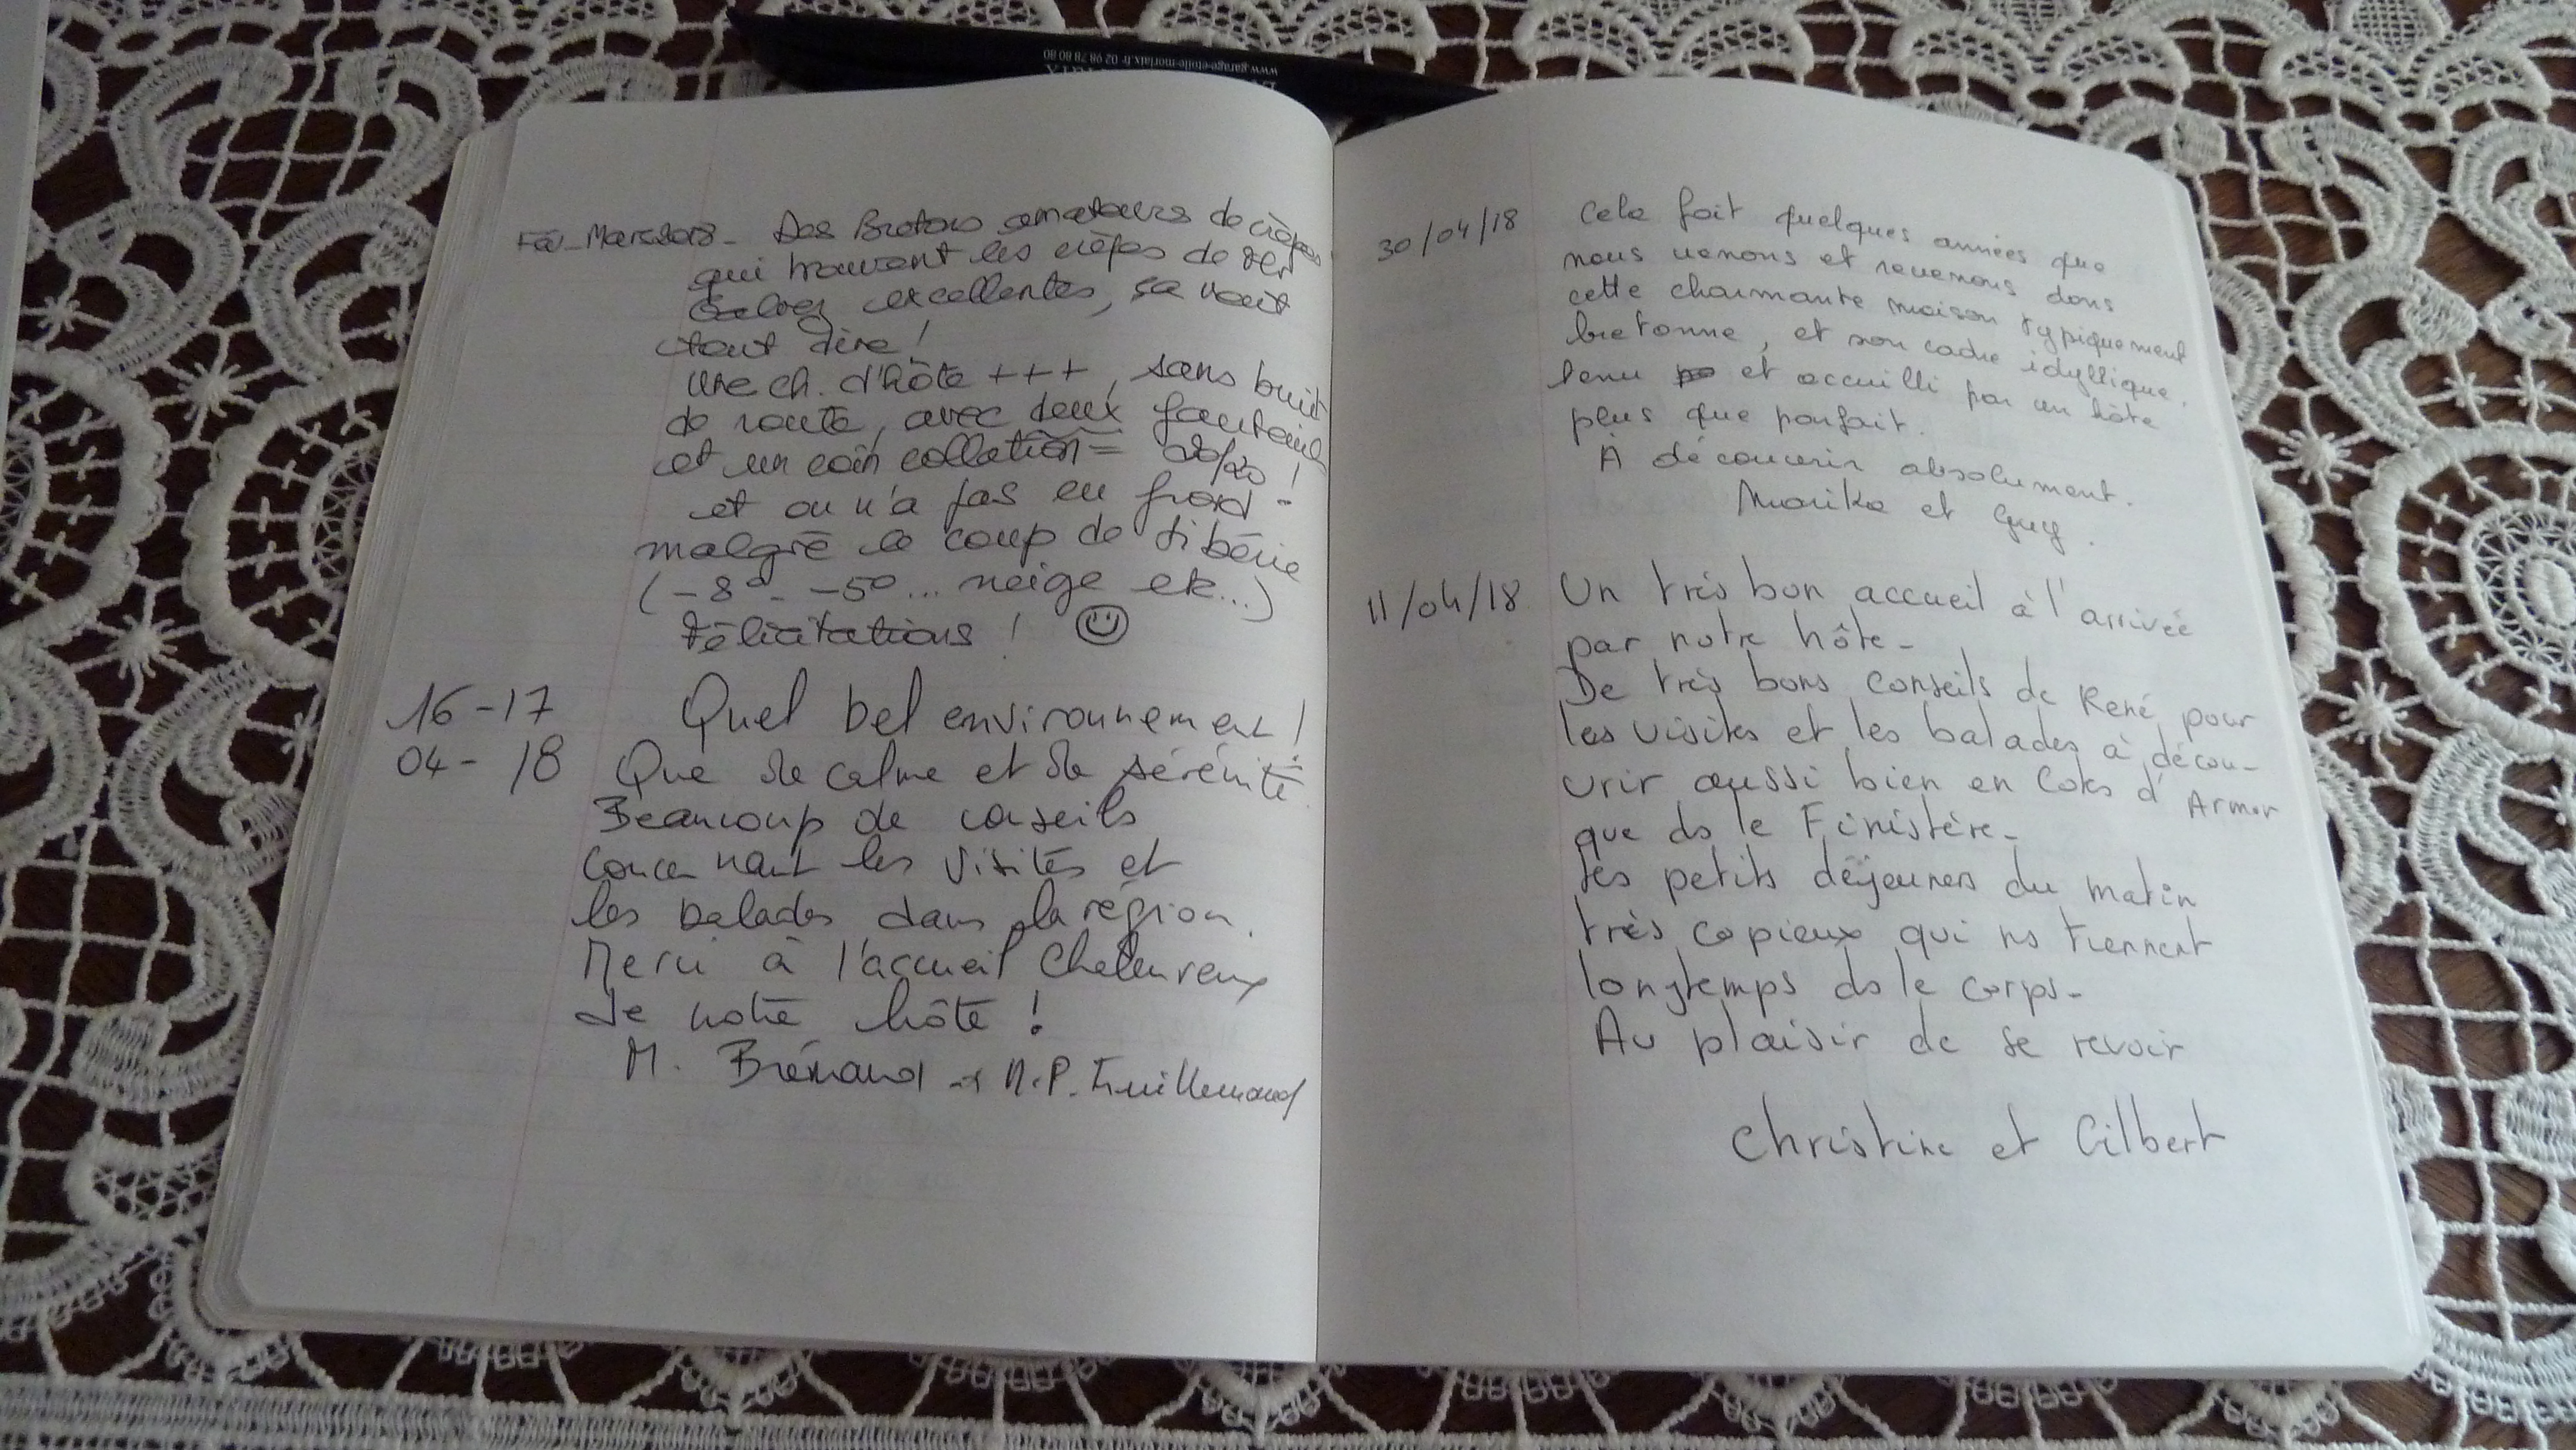 www.garage-etoile-morlaix.fr 02 98 78 80 80
Fév-Mars 2018 - Des Bretons amateurs de crêpes
qui trouvent les crêpes de
excellentes, ça veut
tout dire !
Une ch. d'hôte +++, sans bruit
de route, avec deux fauteuils
et un coin collation = 20/20 !
et on n'a pas eu froid -
malgré le coup de Sibérie
(-8° - -5°... neige etc...)
Félicitations ! ☺
16-17
04-18
Quel bel environnement !
Que de calme et de sérénité.
Beaucoup de conseils
concernant les visites et
les balades dans la région.
Merci à l'accueil chaleureux
de notre hôte !
M. et M.P.
30/04/18 Cela fait quelques années que
nous venons et revenons dans
cette charmante maison typiquement
bretonne, et son cadre idyllique,
tenu et accuilli par un hôte
plus que parfait.
A découvrir absolument.
Marika et Guy.
11/04/18 Un très bon accueil à l'arrivée
par notre hôte -
De très bons conseils de René pour
les visites et les balades à décou-
vrir aussi bien en Cotes d'Armor
que ds le Finistère -
Les petits déjeuners du matin
très copieux qui ns tiennent
longtemps ds le corps -
Au plaisir de se revoir
Christine et Gilbert